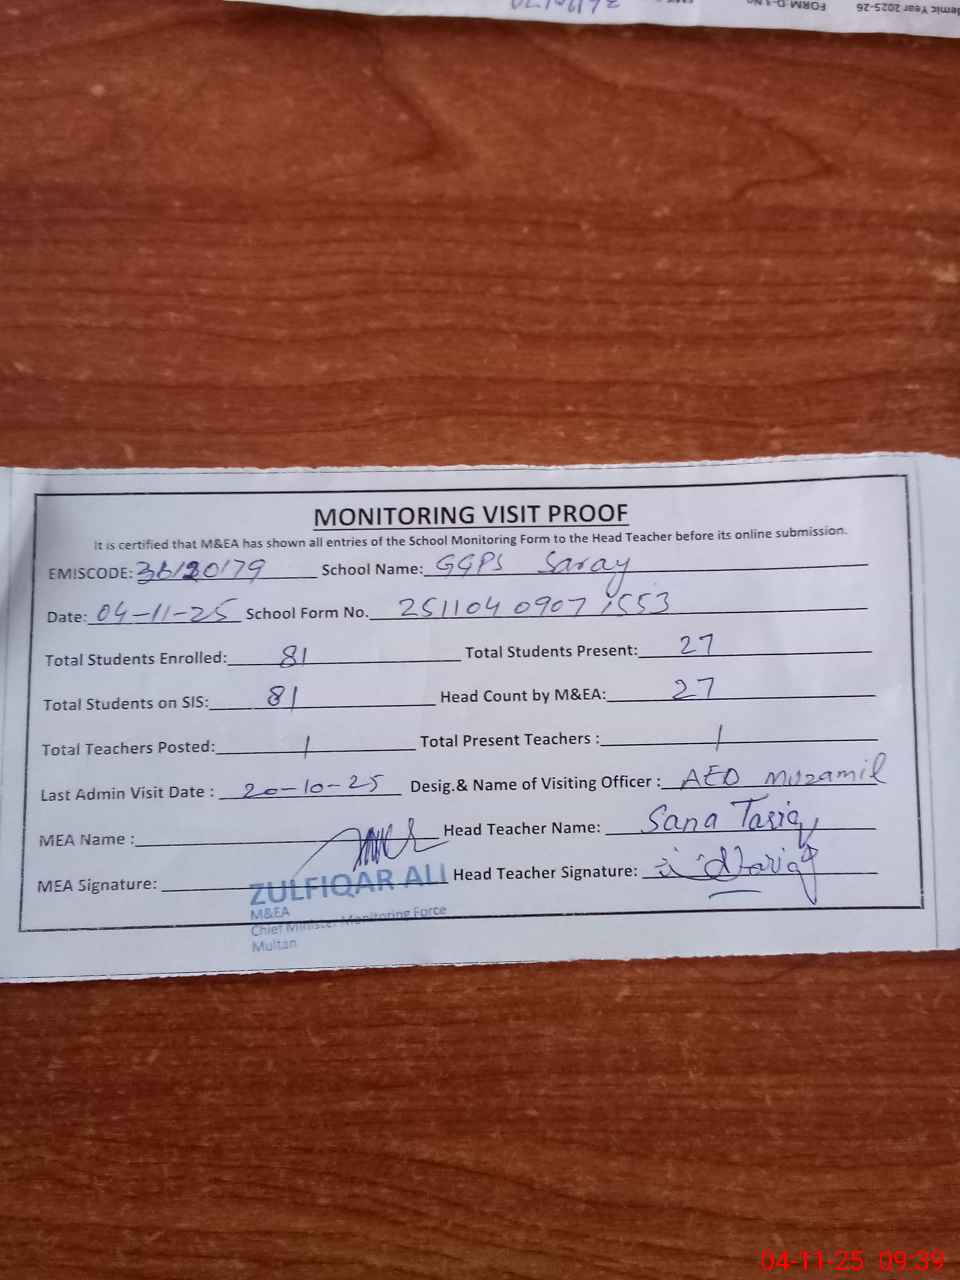 demic Year 2025-26 FORM-D-1 No
MONITORING VISIT PROOF
It is certified that M&EA has shown all entries of the School Monitoring Form to the Head Teacher before its online submission.
EMISCODE: 36120179 School Name: GGPS Saray
Date: 04-11-25 School Form No. 251104 0907 1553
Total Students Enrolled: 81 Total Students Present: 27
Total Students on SIS: 81 Head Count by M&EA: 27
Total Teachers Posted: 1 Total Present Teachers : 1
Last Admin Visit Date : 20-10-25 Desig.& Name of Visiting Officer : AEO Muzamil
MEA Name : Head Teacher Name: Sana Tariq
MEA Signature: Head Teacher Signature:
ZULFIQAR ALI
M&EA
Chief Minister Monitoring Force
Multan
04-11-25 09:39